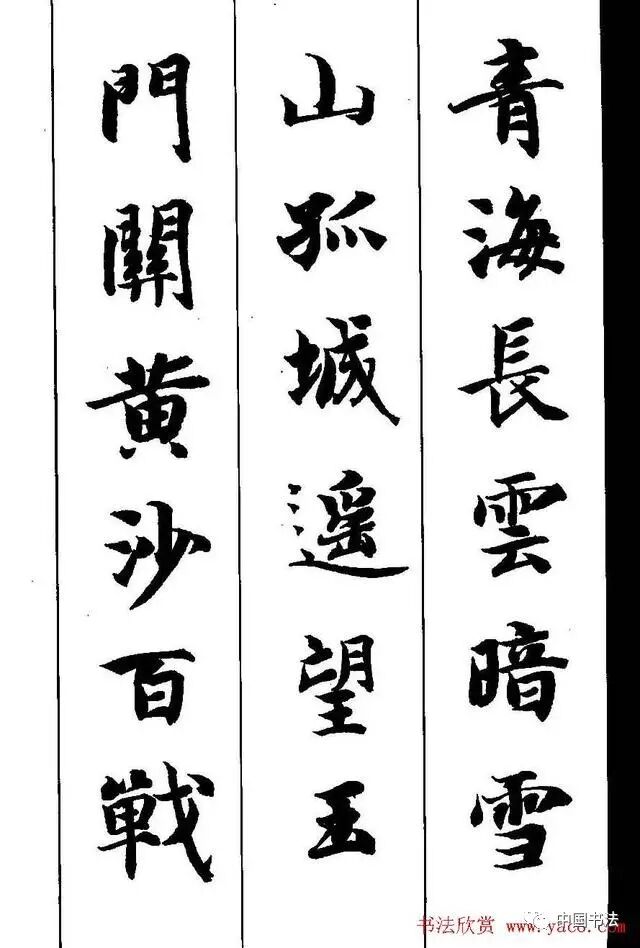 青海長雲暗雪
山孤城遥望玉
門關黄沙百戰
书法欣赏 www.yac8.com
中国书法